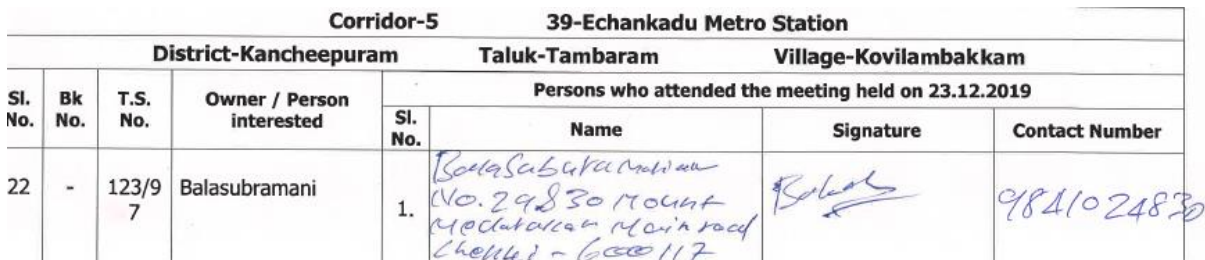 Corridor-5 39-Echankadu Metro Station
District-Kancheepuram Taluk-Tambaram Village-Kovilambakkam
Sl. No. Bk No. T.S. No. Owner / Person interested Persons who attended the meeting held on 23.12.2019
Sl. No. Name Signature Contact Number
22 - 123/97 Balasubramani 1. 9841024830
No. 29830 Mount
Main road
- 6000117